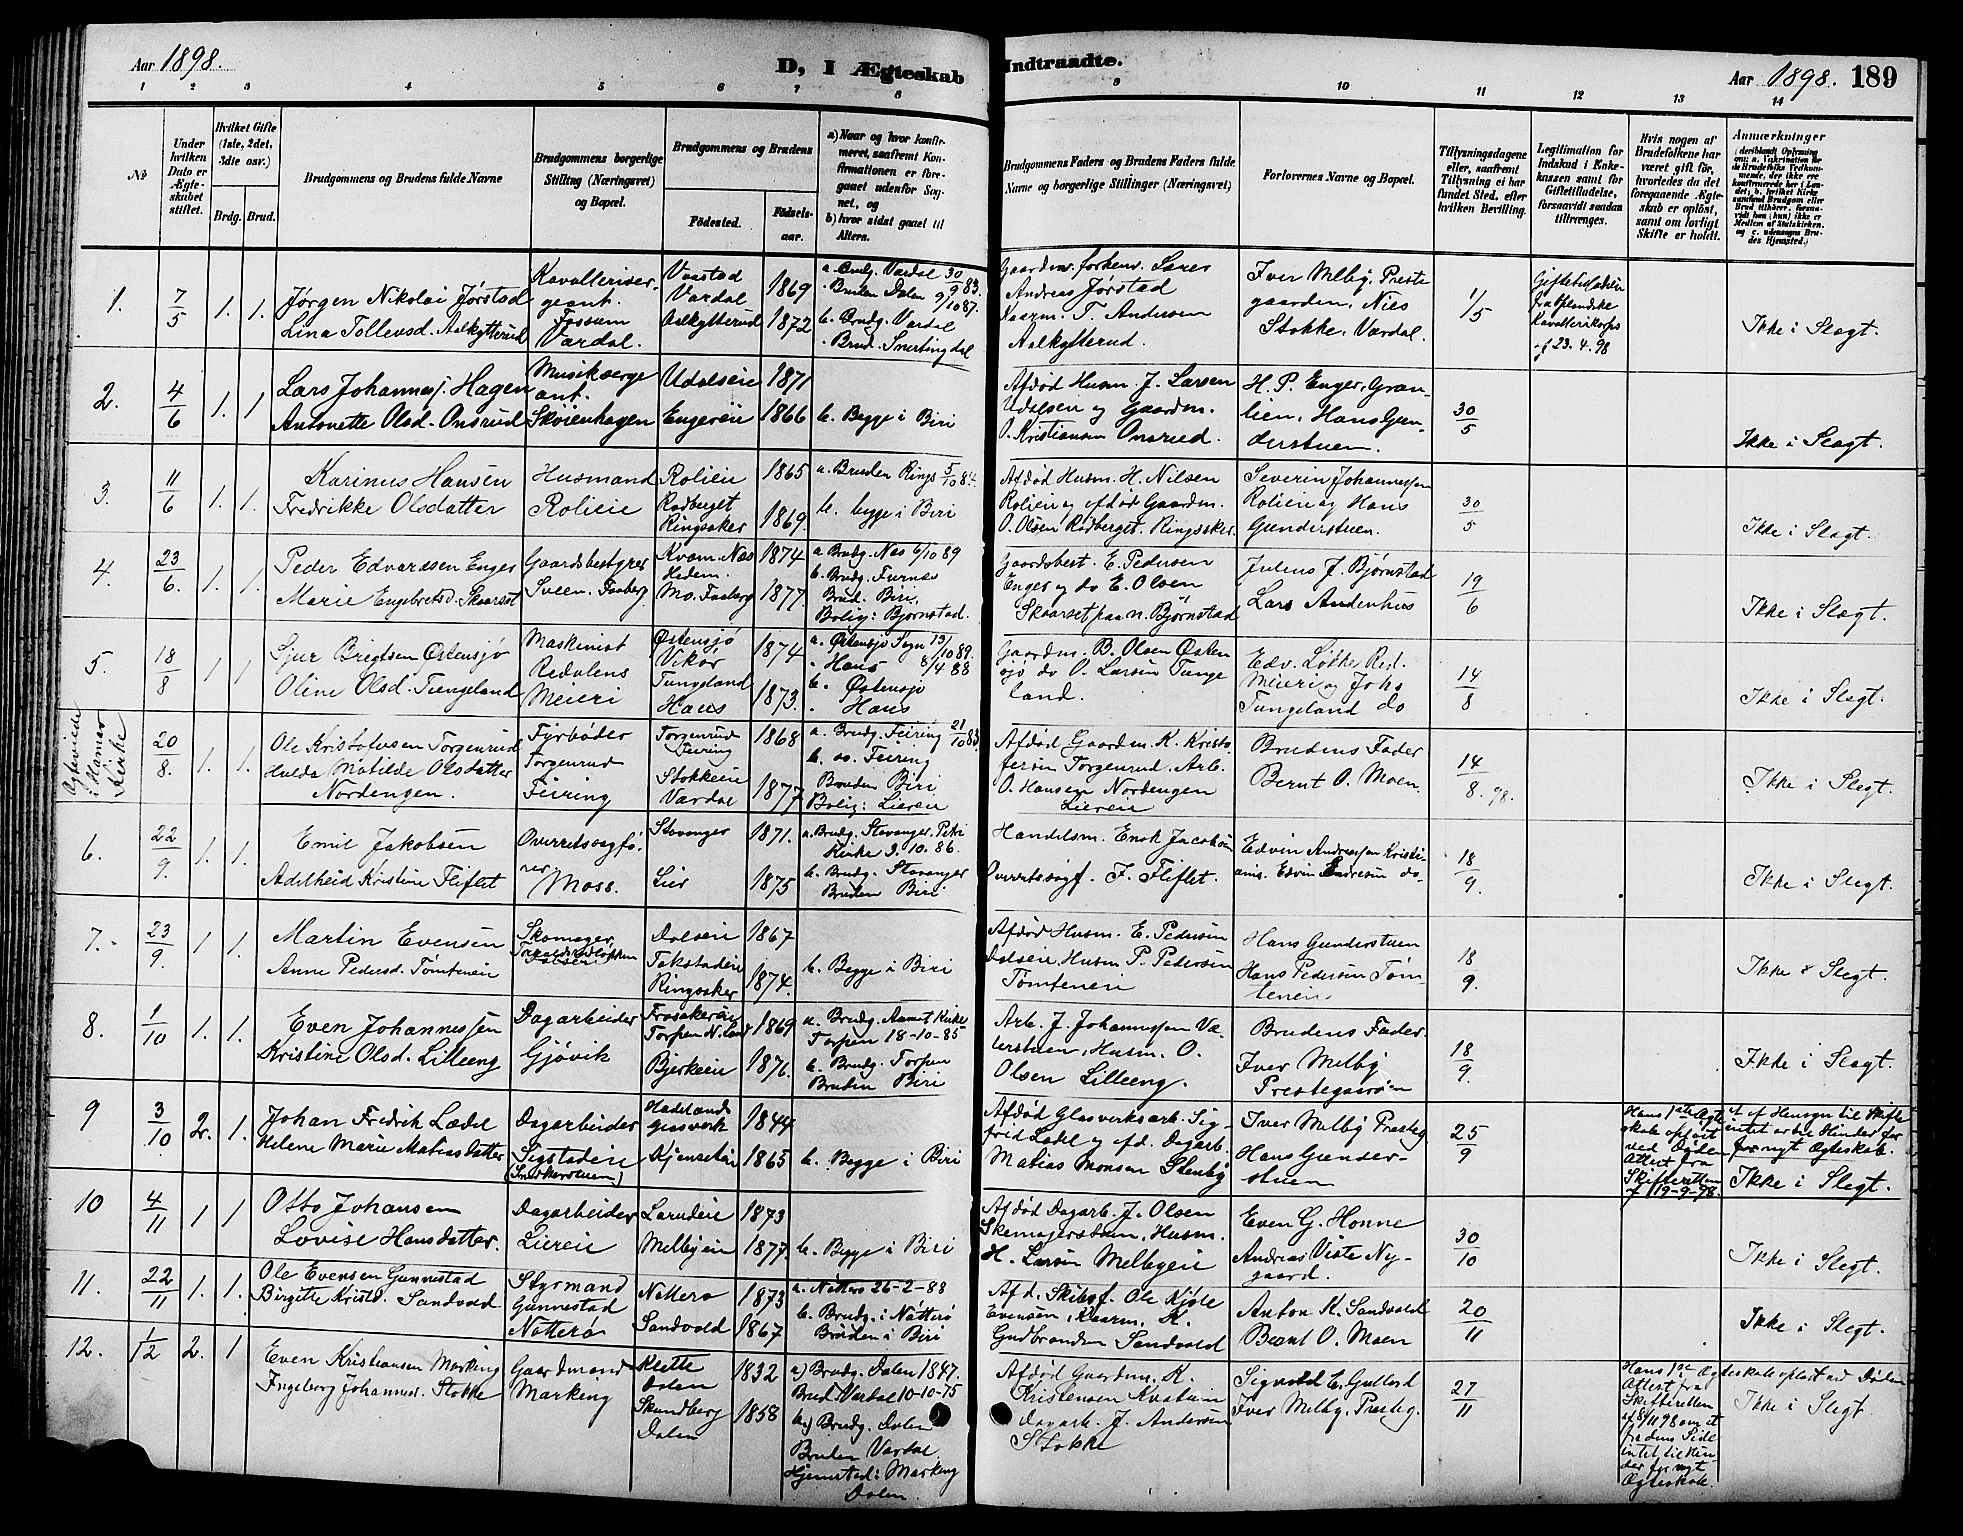 Aar 1898.
D, I Ægteskab
Indtraadte.
Aar 1898. 189
1 2 3 4 5 6 7 8 9 10 11 12 13 14
№
Under hvilken Dato er Ægteskabet stiftet.
Hvilket Gifte (1ste, 2det, 3die osv.)
Brdg. Brud.
Brudgommens og Brudens fulde Navne
Brudgommens borgerlige Stilling (Næringsvei) og Bopæl.
Brudgommens og Brudens
Födested.
Födselsaar.
a) Naar og hvor konfirmeret, saafremt Konfirmationen er foregaaet udenfor Sognet, og
b) hvor sidst gaaet til Alters.
Brudgommens Faders og Brudens Faders fulde Navne og borgerlige Stillinger (Næringsvei)
Forlovernes Navne og Bopæl.
Tillysningsdagene eller, saafremt Tillysning ei har fundet Sted, efter hvilken Bevilling.
Legitimation for Indskud i Enkekassen samt for Giftetilladelse, forsaavidt saadan tiltrænges.
Hvis nogen af Brudefolkene har været gift för, hvorledes da det foregaaende Ægteskab er oplöst, samt om lovligt Skifte er holdt.
Anmærkninger
1. 7/5 1. 1.
Jørgen Nikolai Jørstad
Lina Tollevsd. Aalkytterud
Kavalleriser-
geant.
Fossum
Vardal.
Vardal
Aalkytterud
1869
1872
a. Brudg. Vardal 30/9 83.
" Bruden Dalen 9/10 87.
b. Brudg. Vardal
" Brud. Snertingdal
Gaardm. forhenv. Lares
Andreas Jørstad
Kaarm. T. Andersen
Aalkytterud.
Iver Melby, Preste
gaarden, Nils
Stokke, Vardal.
1/5
af 23.4.98
Ikke i Slegt.
2. 4/6 1. 1
Lars Johannesj. Hagen
Antonette Olsd. Onsrud
Musikserge
ant.
Skoienhagen
Udalseie
Engereie
1871
1866
b. Begge i Biri
Afdød Husm. J. Larsen
Udalseie og Gaardm.
O. Kristiansen Onsrud.
H. P. Enger, Gran-
lien, Hans Gun-
derstuen.
30/5
Ikke i Slegt.
3. 11/6 1. 1.
Karinus Hansen
Fredrikke Olsdatter
Husmand
Rolieie
Rolieie
Rodberget
Ringsaker
1865
1869
a. Bruden Rings. 5/10 84.
b. begge i Biri
Afdød Husm. H. Nilsen
Rolieie og afdød Gaardm.
O. Olsen Rodberget, Ringsaker
Severin Johannessen
Rolieie og Hans
Gunderstuen.
30/5
Ikke i Slegt.
4. 23/6. 1. 1.
Peder Edvardsen Enger
Marie Engebretsd. Skaarset
Gaardsbestyrer
Sveen, Faaberg
Kvam. Nas
Hedem.
Mo. Faaberg
1874
1877
a Brudg. Nas 6/10 89
b. Brudg. Furnæs
Brud. Biri.
Bolig: Bjørnstad.
Gaardsbest. E. Pedersen
Enger og do E. Olsen
Skaarset paa n. Bjørnstad
Julius J. Bjørnstad
Lars Andenhus
19/6
Ikke i Slegt.
5. 18/8 1 1
Sjur Brigtsen Østensjø
Oline Olsd. Tungeland
Maskinist
Redalens
Meieri
Østensjø
Vikør
Tungeland
Haus
1874
1873.
a. Østensjø Sogn 13/10 89.
" Haus 8/4 88
b. Østensjø
" Haus
Gaardm. B. Olsen Østen
sjø do O. Larsen Tunge
land.
Edv. Løkke, Red.
Meieri og Johs
Tungeland do
14/8
Ikke i Slegt.
Egteviede
i Hamar
Kirke
20/8. 1. 1.
Ole Kristofersen Torgenrud
Hulda Matilde Olsdatter
Nordengen.
Fyrbøder
Torgenrud
Feiring
Torgenrud
Feiring
Stokkeie
Vardal
1868
1877
a. Brudg. Feiring 21/10 83.
b. do. Feiring
Bruden Biri
Bolig: Liereie
Afdød Gaardm. K. Kristo
fersen Torgenrud, Arb.
O. Hansen Nordengen
Liereie
Brudens Fader
Bernt O. Moen.
14/8. 98.
Ikke i Slegt.
6. 22/9. 1. 1.
Emil Jakobsen
Adelheid Kristine Fliflet
Overretssagfø-
rer
Moss.
Stavanger
Lier
1871.
1875
a. Brudg. Stavanger. Petri
Kirke 3.10.86.
b. Brudg. Stavanger
Bruden Biri
Handelsm. Enok Jacobsen
Overretssagf. F. Fliflet.
Edvin Andreassen Kristi-
ania. Edvin Andresen do.
18/9.
Ikke i Slegt.
7. 23/9. 1. 1.
Martin Evensen
Anne Pedersd. Tømteneie
Skomager
Dalseie
Dalseie
Taksladeie
Ringsaker
1867
1874.
b. Begge i Biri
Afdød Husm. E. Pedersen
Dalseie, Husm P. Pedersen
Tømteneie
Hans Gunderstuen
Hans Pedersen Tøm-
teneie.
18/9.
Ikke i Slegt.
8. 1/10 1. 1.
Even Johannessen
Kristine Olsd. Lilleeng
Dagarbeider
Gjøvik
Torpen N. Land
Bjerkeeie
1869
1876.
a. Brudg. Aamot Kirke
Torpen 18-10-85
b. Brudg. Torpen
Bruden Biri
Arb. J. Johannessen Væ-
terstuen, Husm. O.
Olsen Lilleeng.
Brudens Fader.
Iver Melby
Prestegaarden
18/9.
Ikke i Slegt.
9 3/10 2. 1.
Johan Fredrik Ladel
Helene Marie Matiasdatter
Dagarbeider
Sigstadeie
Hadelands
Glasverk
1844
1865
b. Begge i Biri
Afdød Glasverksarb. Sig-
frid Ladel og afd. Dagarb.
Matias Monsen Stenby
Iver Melby Presteg.
Hans Gunder-
stuen
25/9
Hans 1ste Ægte
skab opløst
ved Døden
Attest fra
Skifteretten
af 19-9-98.
at af Hensyn til Skifte
intet er til Hinder for
for nyt Ægteskab.
Ikke i Slegt.
10 4/11 1 1
Otto Johansen
Lovise Hansdatter.
Dagarbeider
Liereie
Larudeie
Melbyeie
1873
1877.
b. Begge i Biri
Afdød Dagarb. J. Olsen
Skomagerstuen, Husm.
H. Larsen Melbyeie
Even G. Honne
Andreas Viste Ny-
gaard.
30/10
Ikke i Slegt.
11. 22/11 1. 1.
Ole Evensen Gunnestad
Birgitte Kristd. Sandvold
Styrmand
Gunnestad
Nøtterø
Nøtterø
Sandvold
1873
1867
a. Nøtterø 26-2-88
b. Brudg. i Nøtterø
Bruden i Biri
Afd. Skibsf. Ole Kjøle
Evensen, Kaarm. K.
Gudbrandsen Sandvold
Anton K. Sandvold
Bernt O. Moen
20/11
Ikke i Slegt.
12. 1/12 2. 1
Even Kristiansen Markeng
Ingeborg Johannesd. Stokke
Gaardmand
Markeng
Klette
Dalen
Skundberg
Dalen
1832
1858
a) Brudg. Dalen 1847.
Brud. Vardal 10-10-75
b.) Brudg. Dalen
Bruden Vardal
Hjemsted: Markeng
Dalen.
Afdød Gaardm. K.
Kristensen
Dagarb. J. Andersen
Stokke
Sigvald E. Gullord
Iver Melby, Presteg.
27/11
Hans 1ste Ægteskab opløst ved Døden
Attest fra
Skifteretten
af 8/11 98 om at
fra dens Side
intet til Hin-
der for nyt
Ægteskab.
Ikke i Slegt.